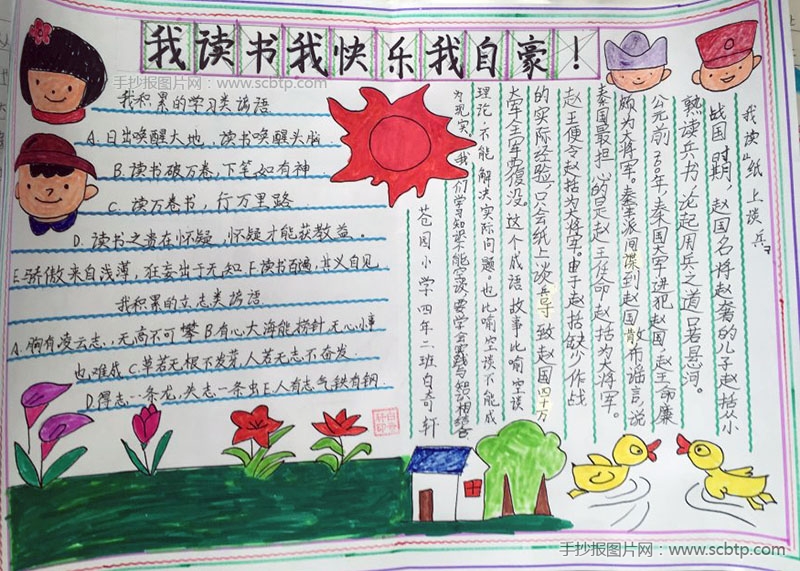 我读书我快乐我自豪!
手抄报图片网:www.scbtp.com
我积累的学习类谚语
A.日出唤醒大地,读书唤醒头脑
B.读书破万卷,下笔如有神
C.读万卷书,行万里路
D.读书之贵在怀疑,怀疑才能获教益。
E.骄傲来自浅薄,狂妄出于无知 F.读书百遍,其义自见
我积累的立志类谚语
A.胸有凌云志,无高不可攀 B.有心大海能捞针,无心小事
也难成 C.草若无根不发芽,人若无志不奋发
D.得志一条龙,失志一条虫 E.人有志气,铁有钢
我读"纸上谈兵"
战国时期,赵国名将赵奢的儿子赵括从小
熟读兵书,论起用兵之道口若悬河。
公元前260年,秦国大军进犯赵国,赵王命廉
颇为大将军。秦军派间谍到赵国散布谣言,说
秦国最担心的是赵王任命赵括为大将军。
赵王便令赵括为大将军。由于赵括缺少作战
的实际经验,只会纸上谈兵,导致赵国四十万
大军全军覆没。这个成语故事比喻空谈
理论,不能解决实际问题,也比喻空谈不能成
为现实。我们学习知识不能空谈,要学会实践与知识相结合
苍园小学四年二班白奇轩
手抄报图片网:www.scbtp.com